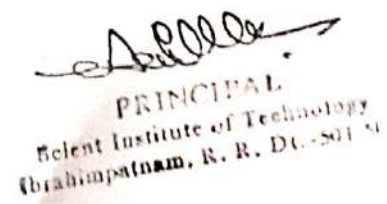 PRINCIPAL
Scient Institute of Technology
Ibrahimpatnam, R. R. Dt.-501